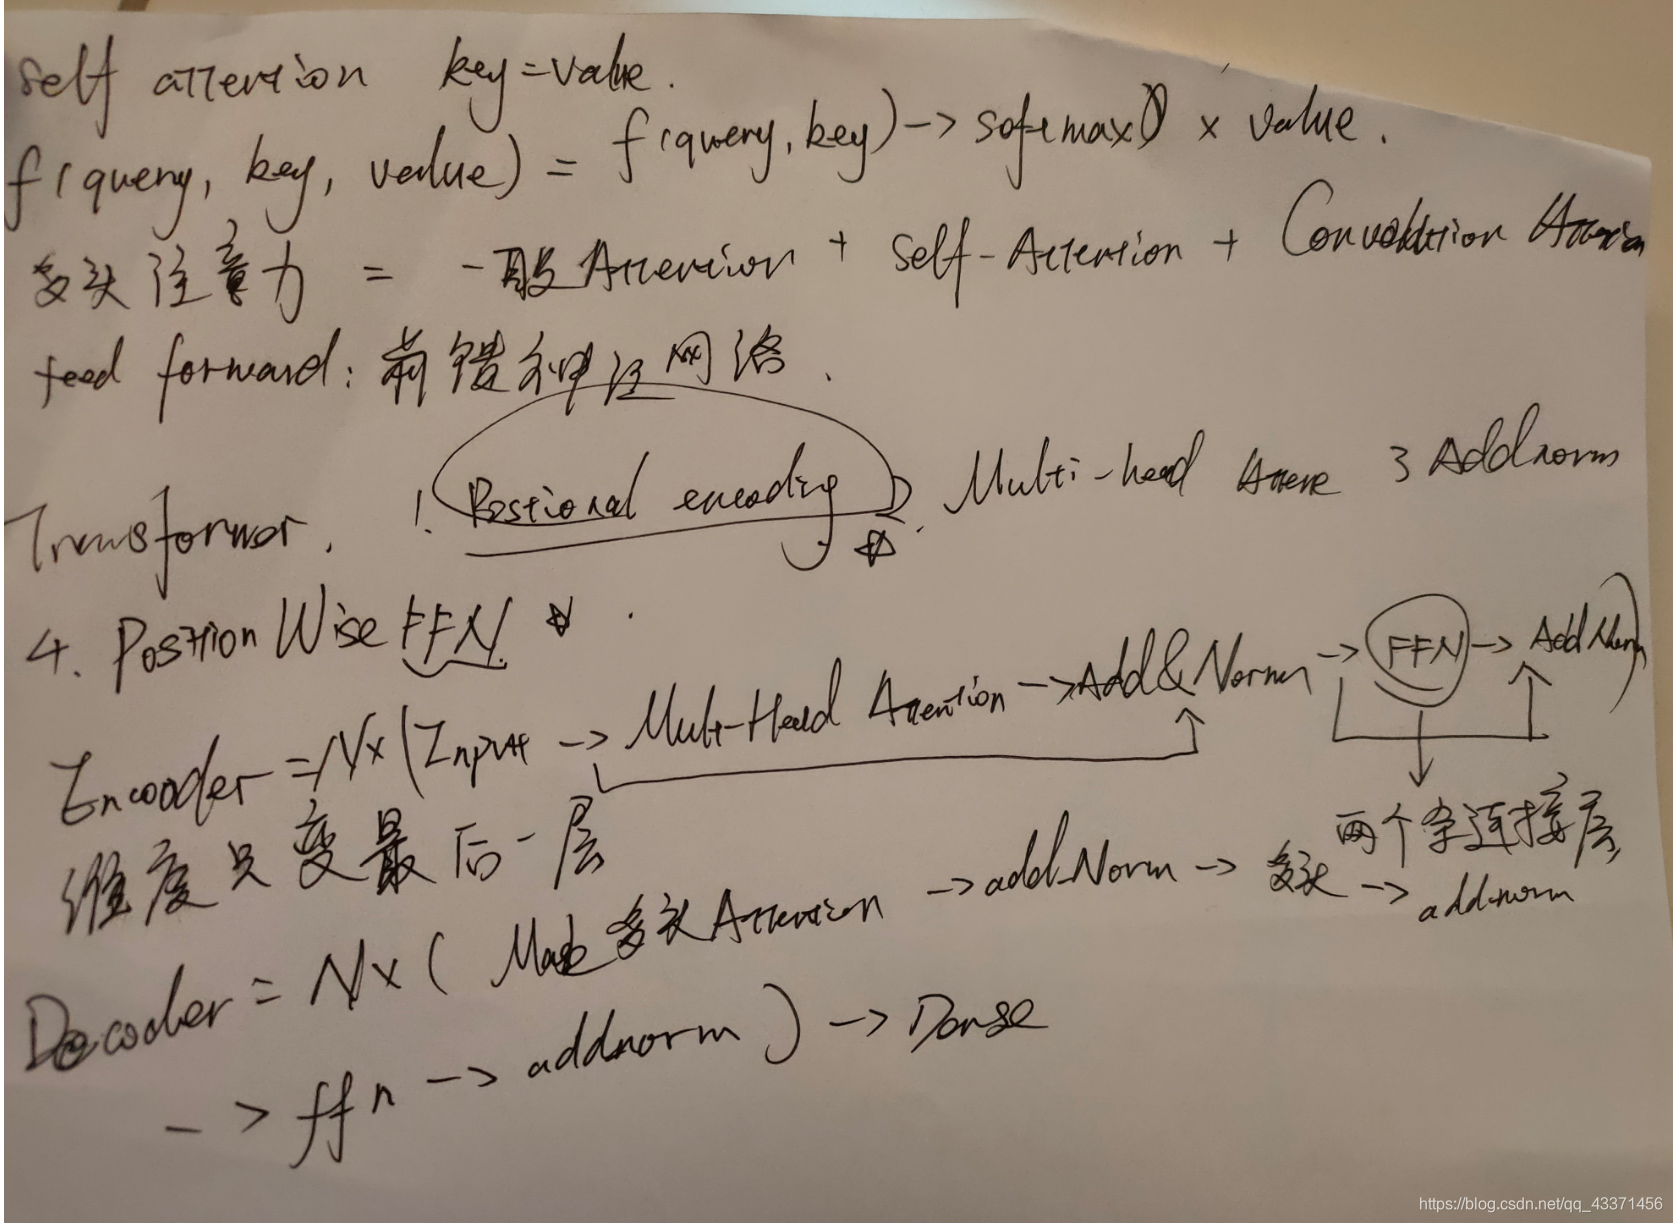 self attention key=value.
f(query, key, value) = f(query, key) -> softmax() × value.
多头注意力 = 一般Attention + self-Attention + Convolution Attention
feed forward: 前馈神经网络.
Transformer. 1. Postional encoding 2. Multi-head Attene 3 Addnorm
4. Position Wise FFN
Encoder = N×(Input -> Mult-Head Attention -> Add&Norm -> FFN -> AddNorm)
两个全连接层,
维度只变最后一层
Decoder = N×( Mask多头Attention -> add-Norm -> 多头 -> addnorm
-> ffn -> addnorm ) -> Dense
https://blog.csdn.net/qq_43371456